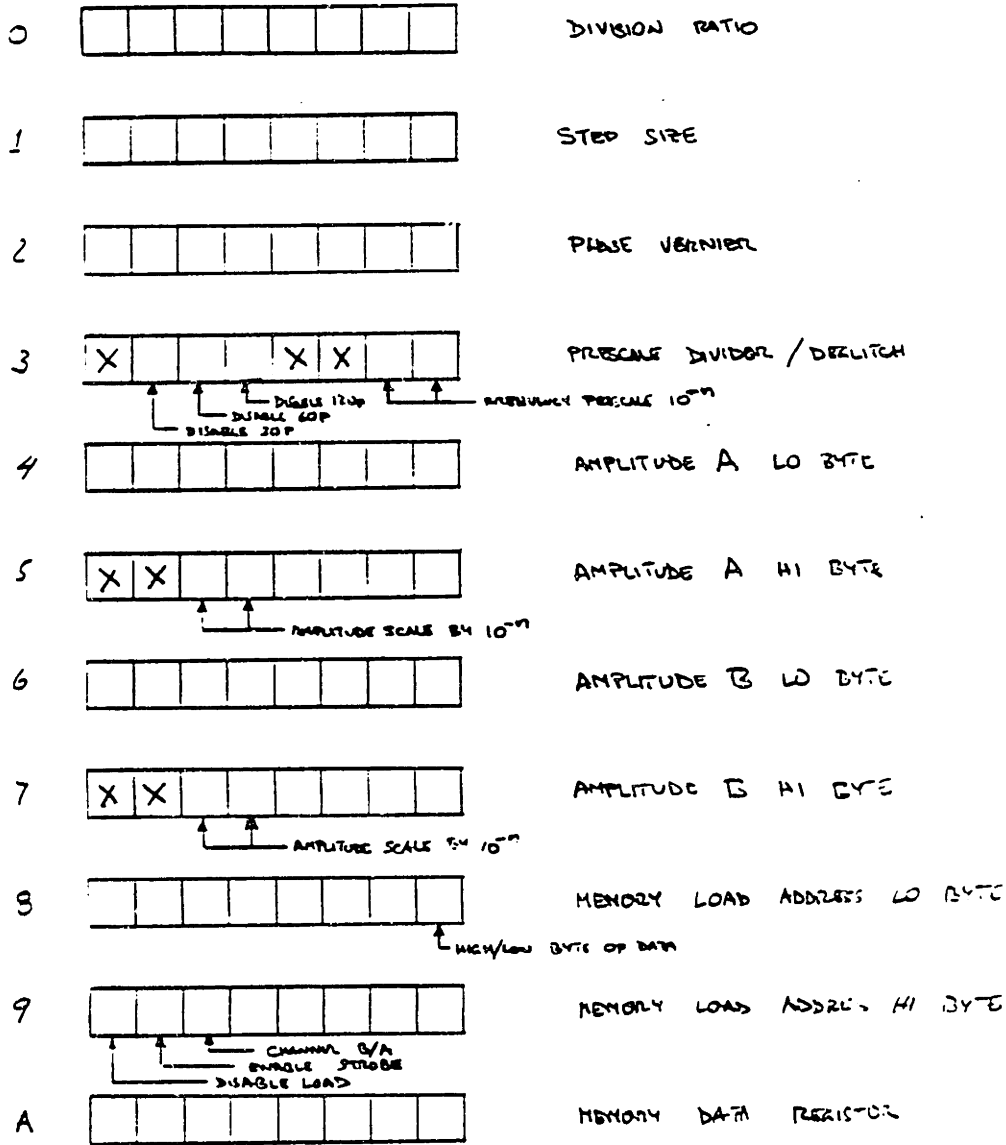 0 DIVISION RATIO
1 STEP SIZE
2 PHASE VERNIER
3 X X X PRESCALE DIVIDER / DEGLITCH
DISABLE 120P FREQUENCY PRESCALE 10⁻ⁿ
DISABLE 60P
DISABLE 30P
4 AMPLITUDE A LO BYTE
5 X X AMPLITUDE A HI BYTE
AMPLITUDE SCALE BY 10⁻ⁿ
6 AMPLITUDE B LO BYTE
7 X X AMPLITUDE B HI BYTE
AMPLITUDE SCALE BY 10⁻ⁿ
8 MEMORY LOAD ADDRESS LO BYTE
HIGH/LOW BYTE OF DATA
9 MEMORY LOAD ADDRESS HI BYTE
CHANNEL B/A
ENABLE STROBE
DISABLE LOAD
A MEMORY DATA REGISTER